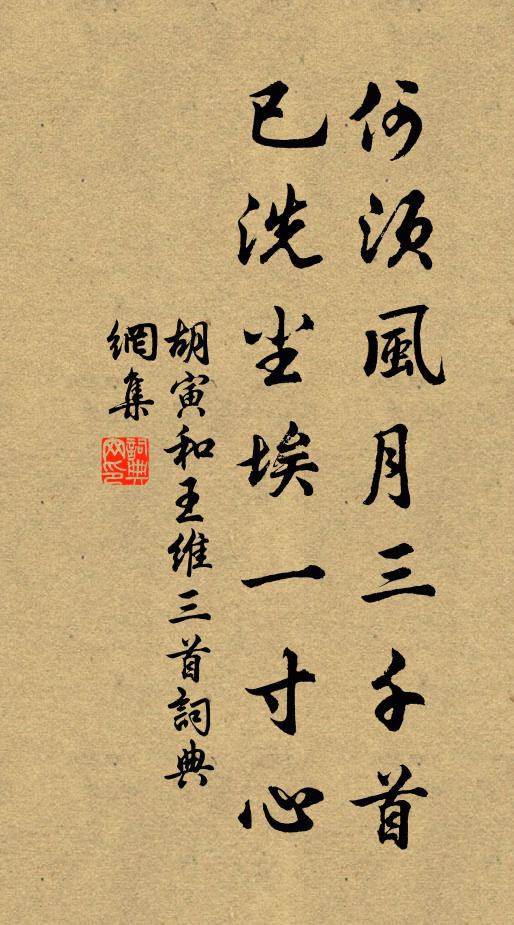 何須風月三千首
已洗尘埃一寸心
胡寅和王維三首詞典
網集
詞典
网印